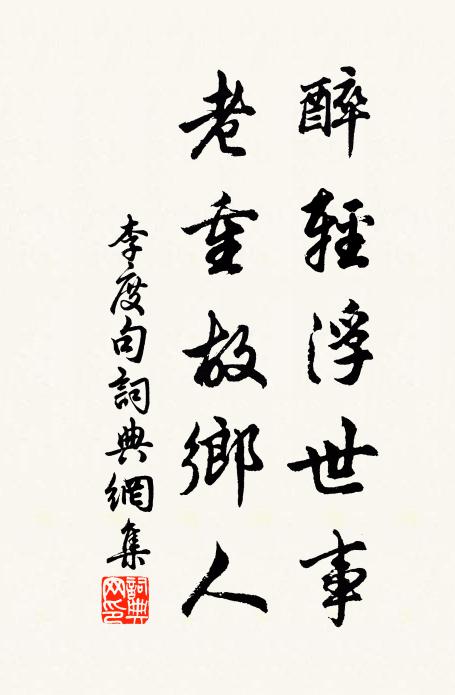 醉輕浮世事
老重故鄉人
李度句詞典網集
詞典
网印